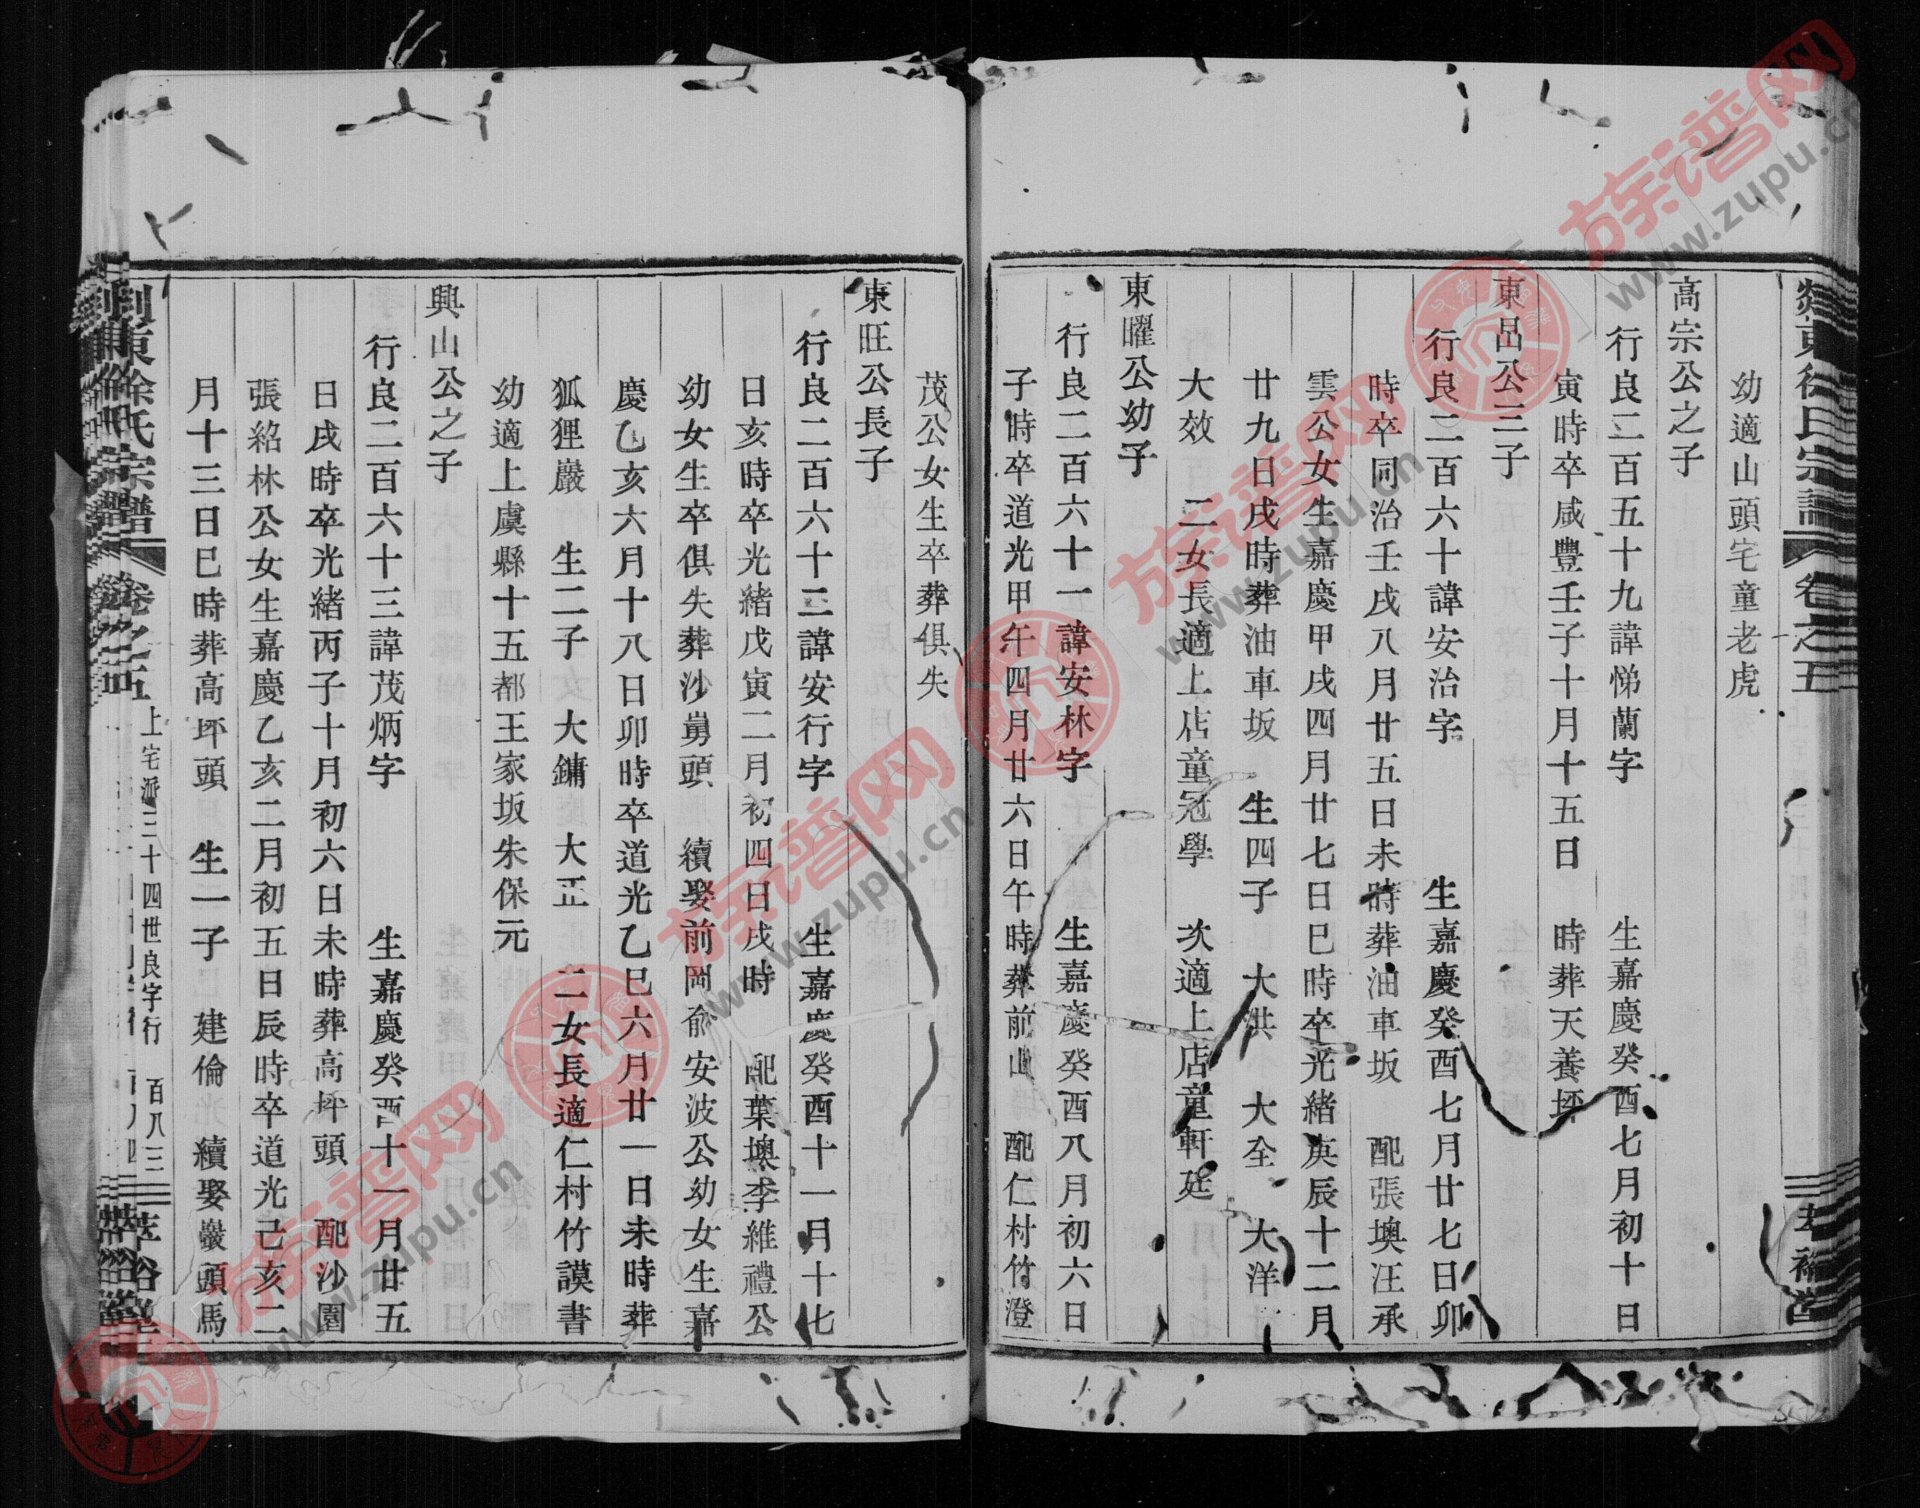 幼適山頭宅童老虎
高宗公之子
行良二百五十九諱悌蘭字 生嘉慶癸酉七月初十日
寅時卒咸豐壬子十月十五日 時葬天養坪
東呂公三子
行良二百六十諱安治字 生嘉慶癸酉七月廿七日卯
時卒同治壬戌八月廿五日未時葬油車坂 配張墺汪承
雲公女生嘉慶甲戌四月廿七日巳時卒光緒庚辰十二月
廿九日戌時葬油車坂 生四子 大洪 大全 大洋
大效 二女長適上店童冠學 次適上店童軒廷
東曜公幼子
行良二百六十一諱安林字 生嘉慶癸酉八月初六日
子時卒道光甲午四月廿六日午時葬前山 配仁村竹澄
茂公女生卒葬俱失
東旺公長子
行良二百六十二諱安行字 生嘉慶癸酉十一月十七
日亥時卒光緒戊寅二月初四日戌時 配葉墺李維禮公
幼女生卒俱失葬沙舅頭 續娶前岡俞安波公幼女生嘉
慶乙亥六月十八日卯時卒道光乙巳六月廿一日未時葬
狐狸巖 生二子 大鏞 大正 二女長適仁村竹謨書
幼適上虞縣十五都王家坂朱保元
興山公之子
行良二百六十三諱茂炳字 生嘉慶癸酉十一月廿五
日戌時卒光緒丙子十月初六日未時葬高坪頭 配沙園
張紹林公女生嘉慶乙亥二月初五日辰時卒道光己亥二
月十三日巳時葬高坪頭 生一子 建倫 續娶巖頭馬
剡東徐氏宗譜 卷之五 上宅派三十四世良字行 百八三 萃裕堂
族谱网
www.zupu.cn